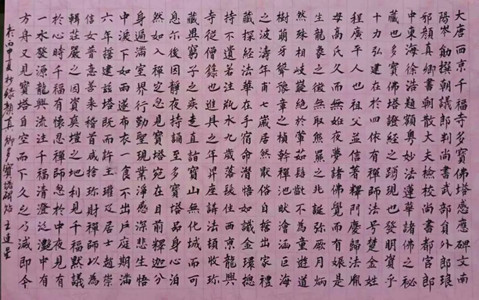 大唐西京千福寺多寶佛塔感應碑文南
陽岑勛撰朝議郎判尚書武部員外郎琅
邪顏真卿書朝散大夫檢校尚書都官郎
中東海徐浩題額粵妙法蓮華諸佛之秘
藏也多寶佛塔證經之踴現也發明資乎
十力弘建在於四依有禪師法號楚金姓
程廣平人也祖父並信著釋門慶歸法胤
母高氏久而無妊夜夢諸佛覺而有娠是
生龍象之徵無取熊羆之兆誕彌厥月炳
然殊相岐嶷絕於葷茹髫齔不為童遊道
樹萌牙聳豫章之楨幹禪池畎澮涵巨海
之波濤年甫七歲居然厭俗自誓出家禮
藏探經法華在手宿命潛悟如識金環總
持不遺若注瓶水九歲落髮住西京龍興
寺從僧籙也進具之年昇座講法頓收珍
藏異窮子之疾走直詣寶山無化城而可
息尔後因靜夜持誦至多寶塔品身心泊
然如入禪定忽見寶塔宛在目前釋迦分
身遍滿空界行勤聖現業淨感深悲生悟
中淚下如雨遂布衣一食不出戶庭期滿
六年誓建茲塔既而許王瓘及居士趙崇
信女普意善來稽首咸捨珍財禪師以為
輯莊嚴之因資爽塏之地利見千福默議
於心時千福有懷忍禪師忽於中夜見有
一水發源龍興流注千福清澄泛灧中有
方舟又見寶塔自空而下久之乃滅即今
於丙申年秋錄顏真卿多寶塔碑 王建